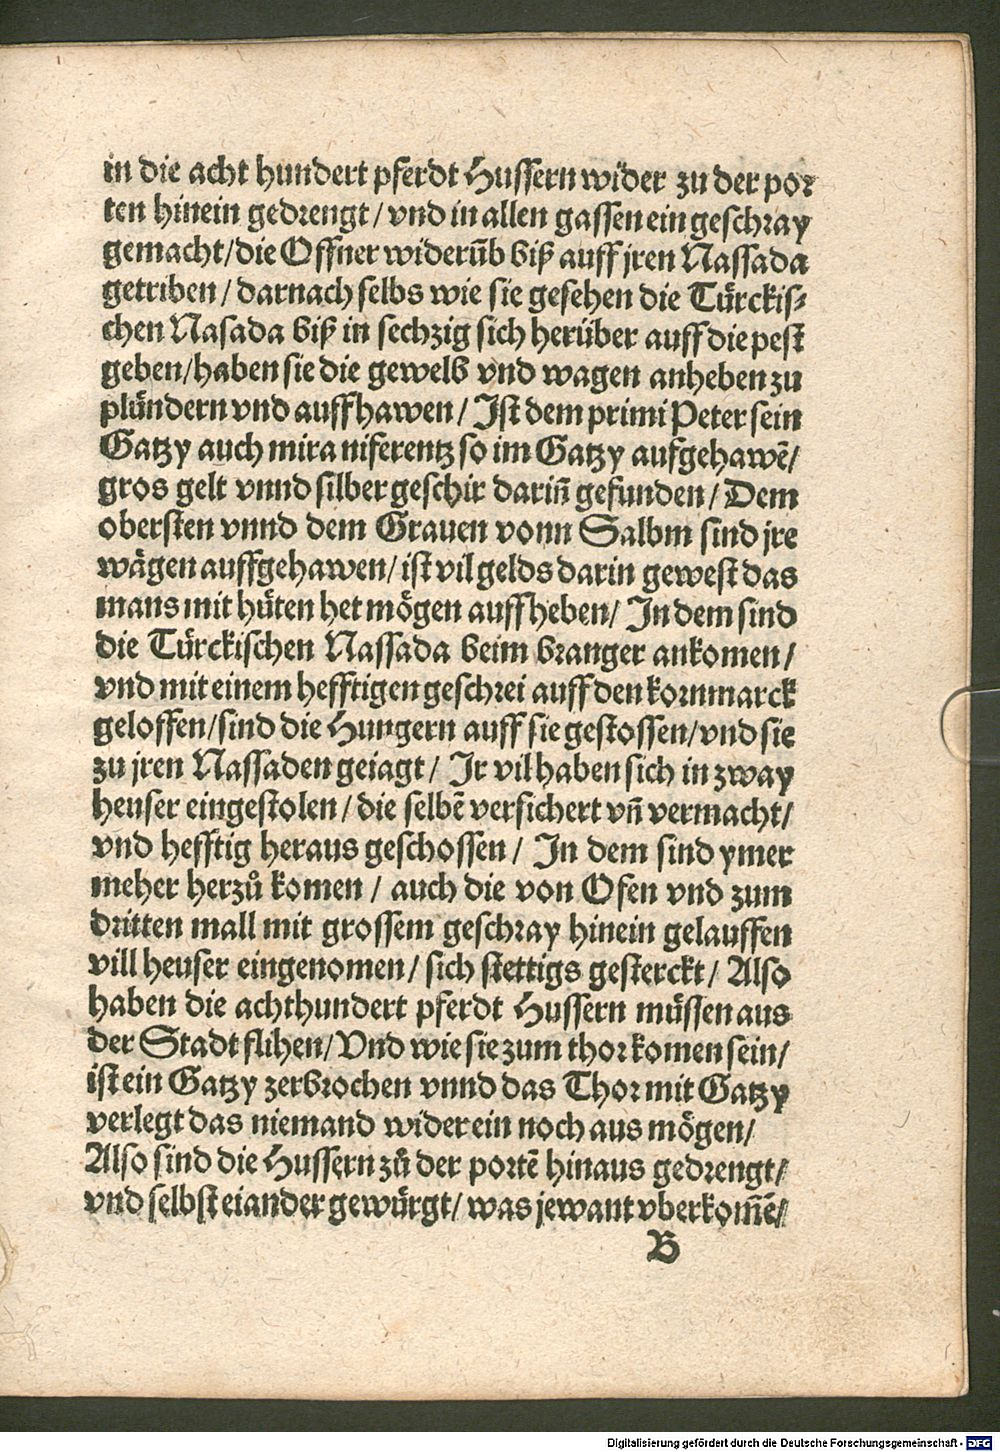 in die acht hundert pferdt Hussern wider zu der por
ten hinein gedrengt / vnd in allen gassen ein geschray
gemacht / die Offner widerūb biß auff jren Nassada
getriben / darnach selbs wie sie gesehen die Türckis⸗
chen Nasada biß in sechzig sich herüber auff die pest
geben / haben sie die gewelb vnd wagen anheben zu
plündern vnd auffhawen / Ist dem primi Peter sein
Gatzy auch mira niferentz so im Gatzy aufgehawē /
gros gelt vnnd silber geschir dariñ gefunden / Dem
obersten vnnd dem Grauen vonn Salbm sind jre
wägen auffgehawen / ist vil gelds darin gewest das
mans mit hüten het mögen auffheben / In dem sind
die Türckischen Nassada beim branger ankomen /
vnd mit einem hefftigen geschrei auff den kornmarck
geloffen / sind die Hungern auff sie gestossen / vnd sie
zu jren Nassaden geiagt / Ir vil haben sich in zway
heuser eingestolen / die selbē versichert vñ vermacht /
vnd hefftig heraus geschossen / In dem sind ymer
meher herzů komen / auch die von Ofen vnd zum
dritten mall mit grossem geschray hinein gelauffen
vill heuser eingenomen / sich stettigs gesterckt / Also
haben die achthundert pferdt Hussern müssen aus
der Stadt flihen / Vnd wie sie zum thor komen sein /
ist ein Gatzy zerbrochen vnnd das Thor mit Gatzy
verlegt das niemand wider ein noch aus mögen /
Also sind die Hussern zů der portē hinaus gedrengt /
vnd selbst eiander gewürgt / was jewant vberkom̄ē /
B
Digitalisierung gefördert durch die Deutsche Forschungsgemeinschaft - DFG